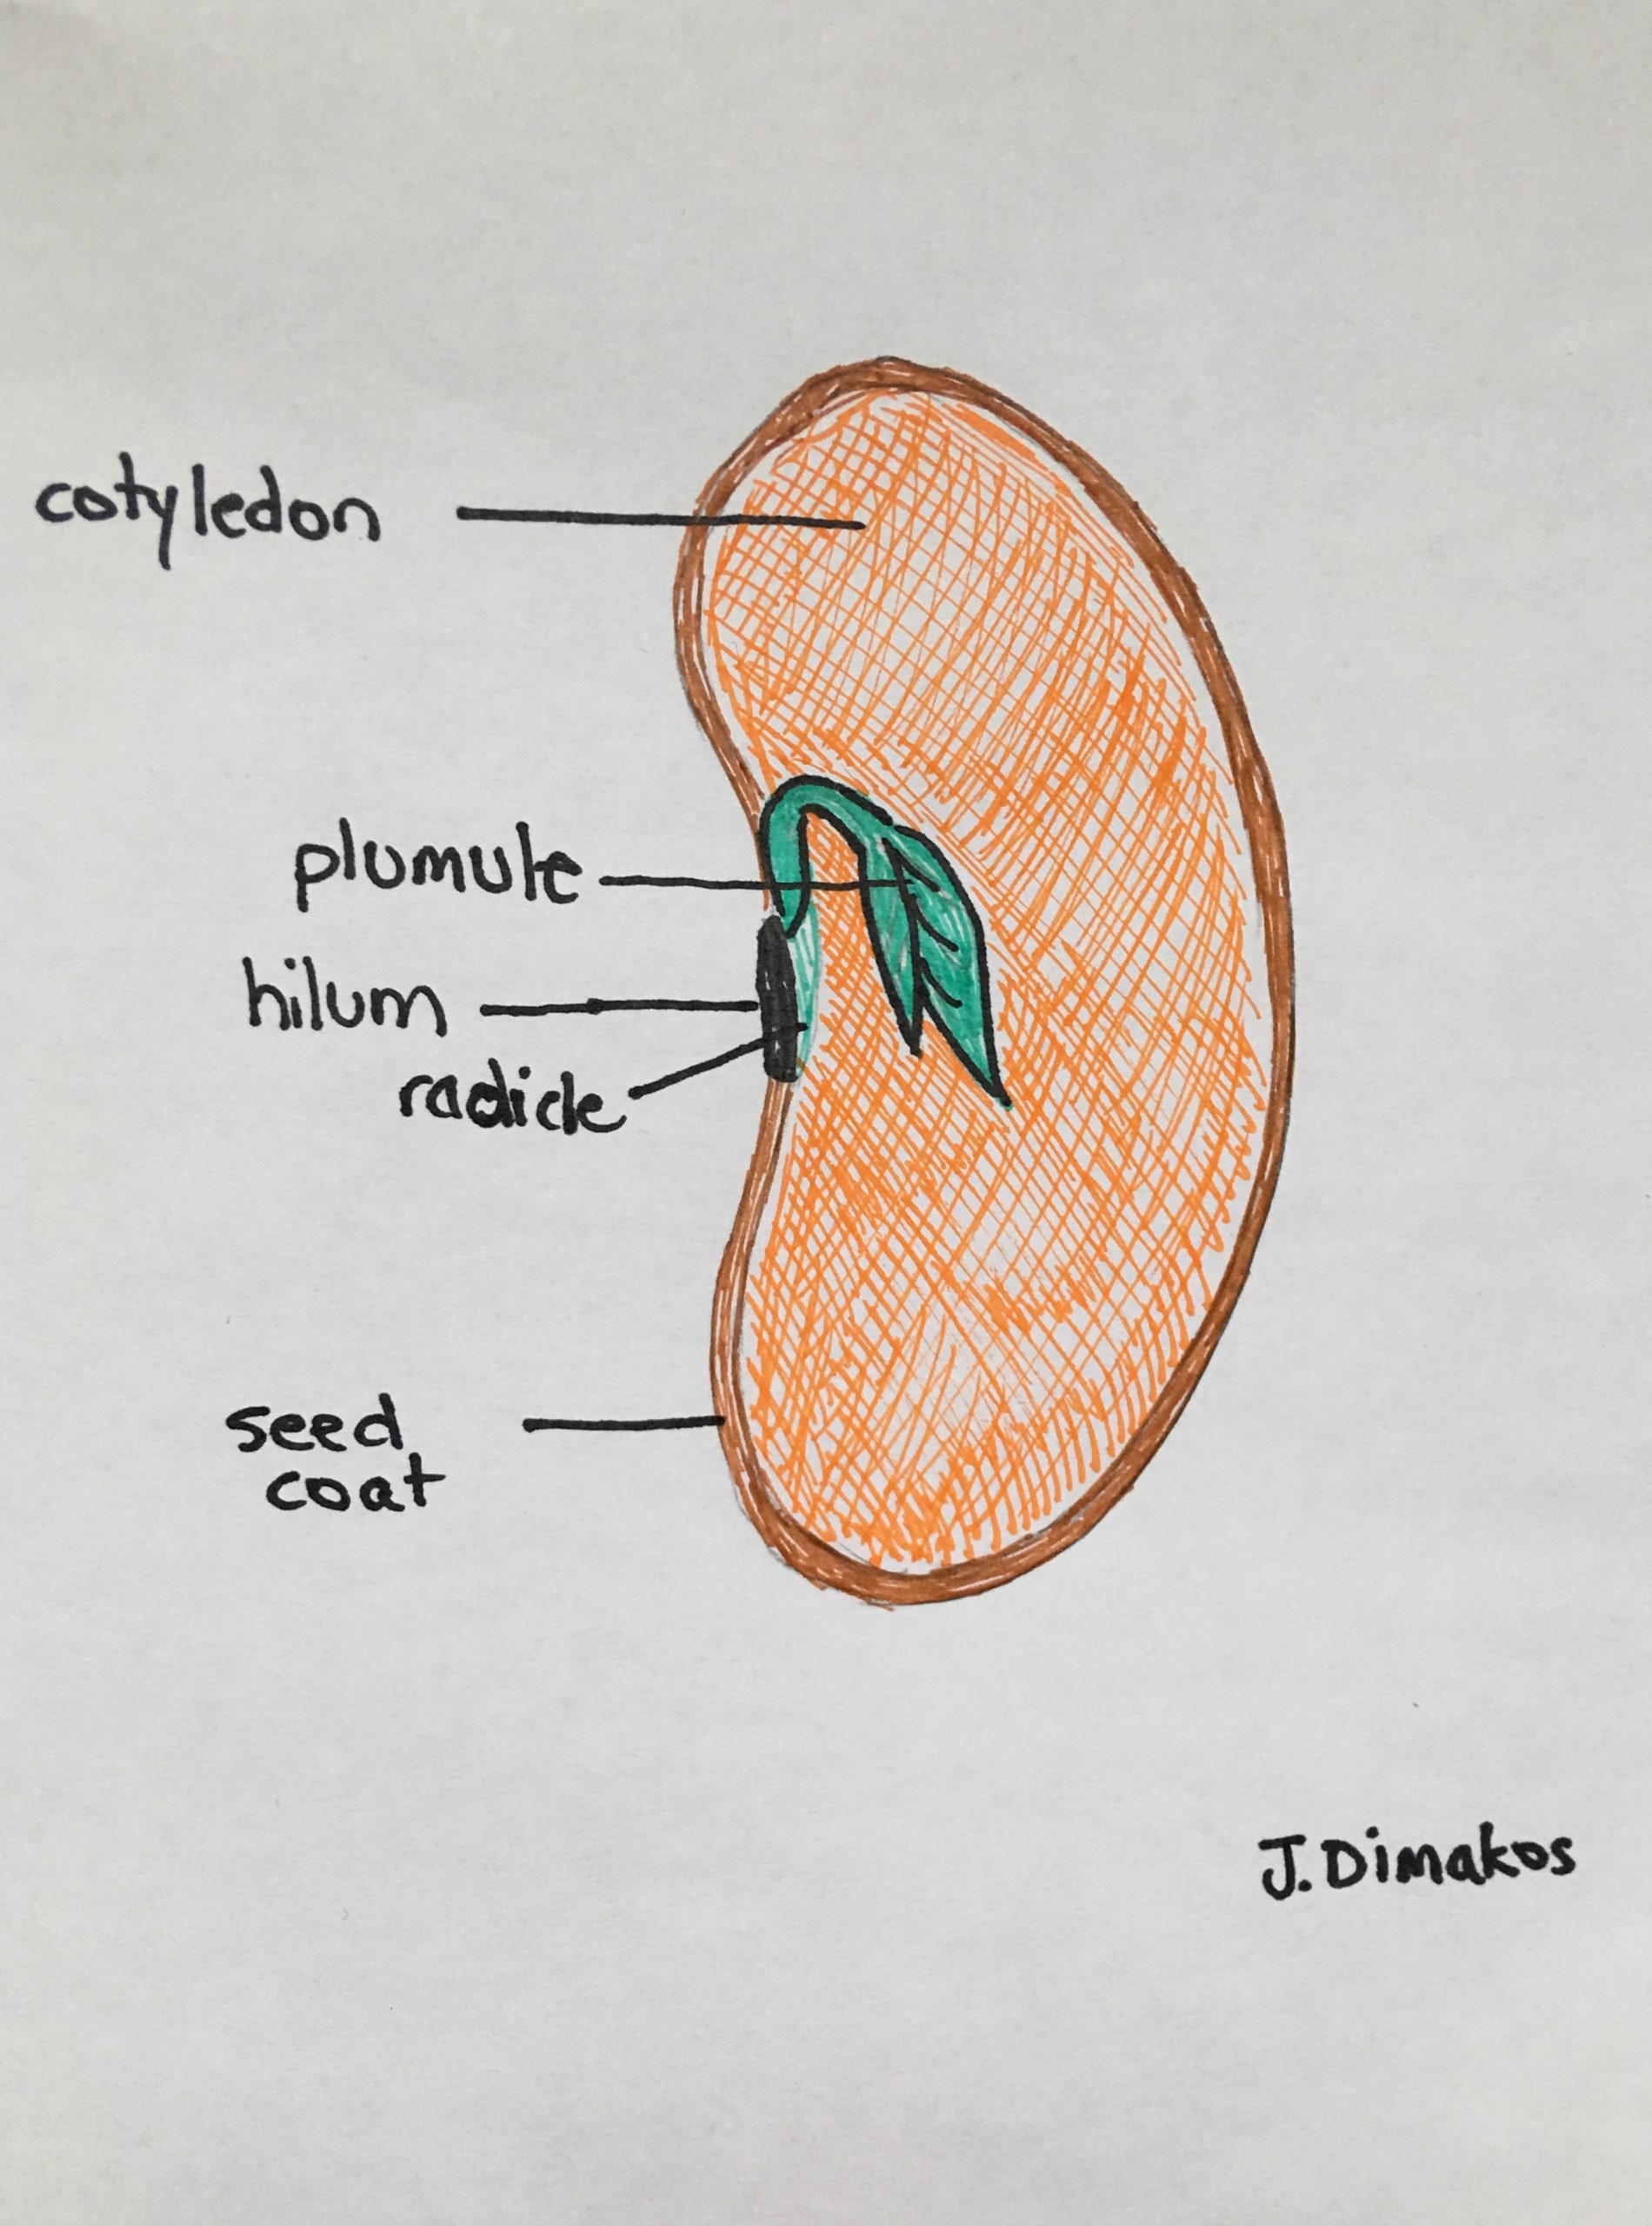 cotyledon
plumule
hilum
radicle
seed
coat
J. Dimakos